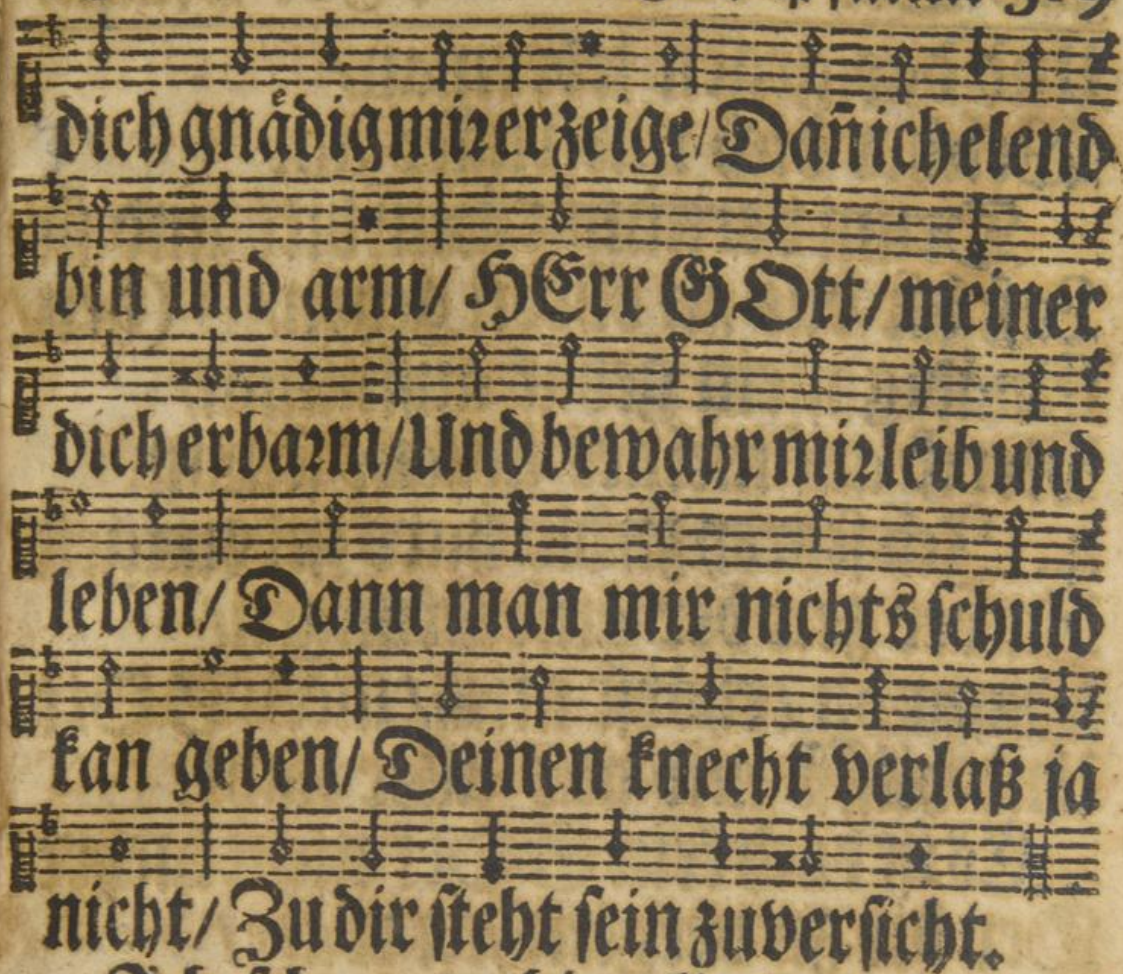 dich gnaͤdig mir erzeige/ Dañ ich elend
bin und arm/ HErr GOtt/ meiner
dich erbarm/ Und bewahr mir leib und
leben/ Dann man mir nichts schuld
kan geben/ Deinen knecht verlaß ja
nicht/ Zu dir steht sein zuversicht.